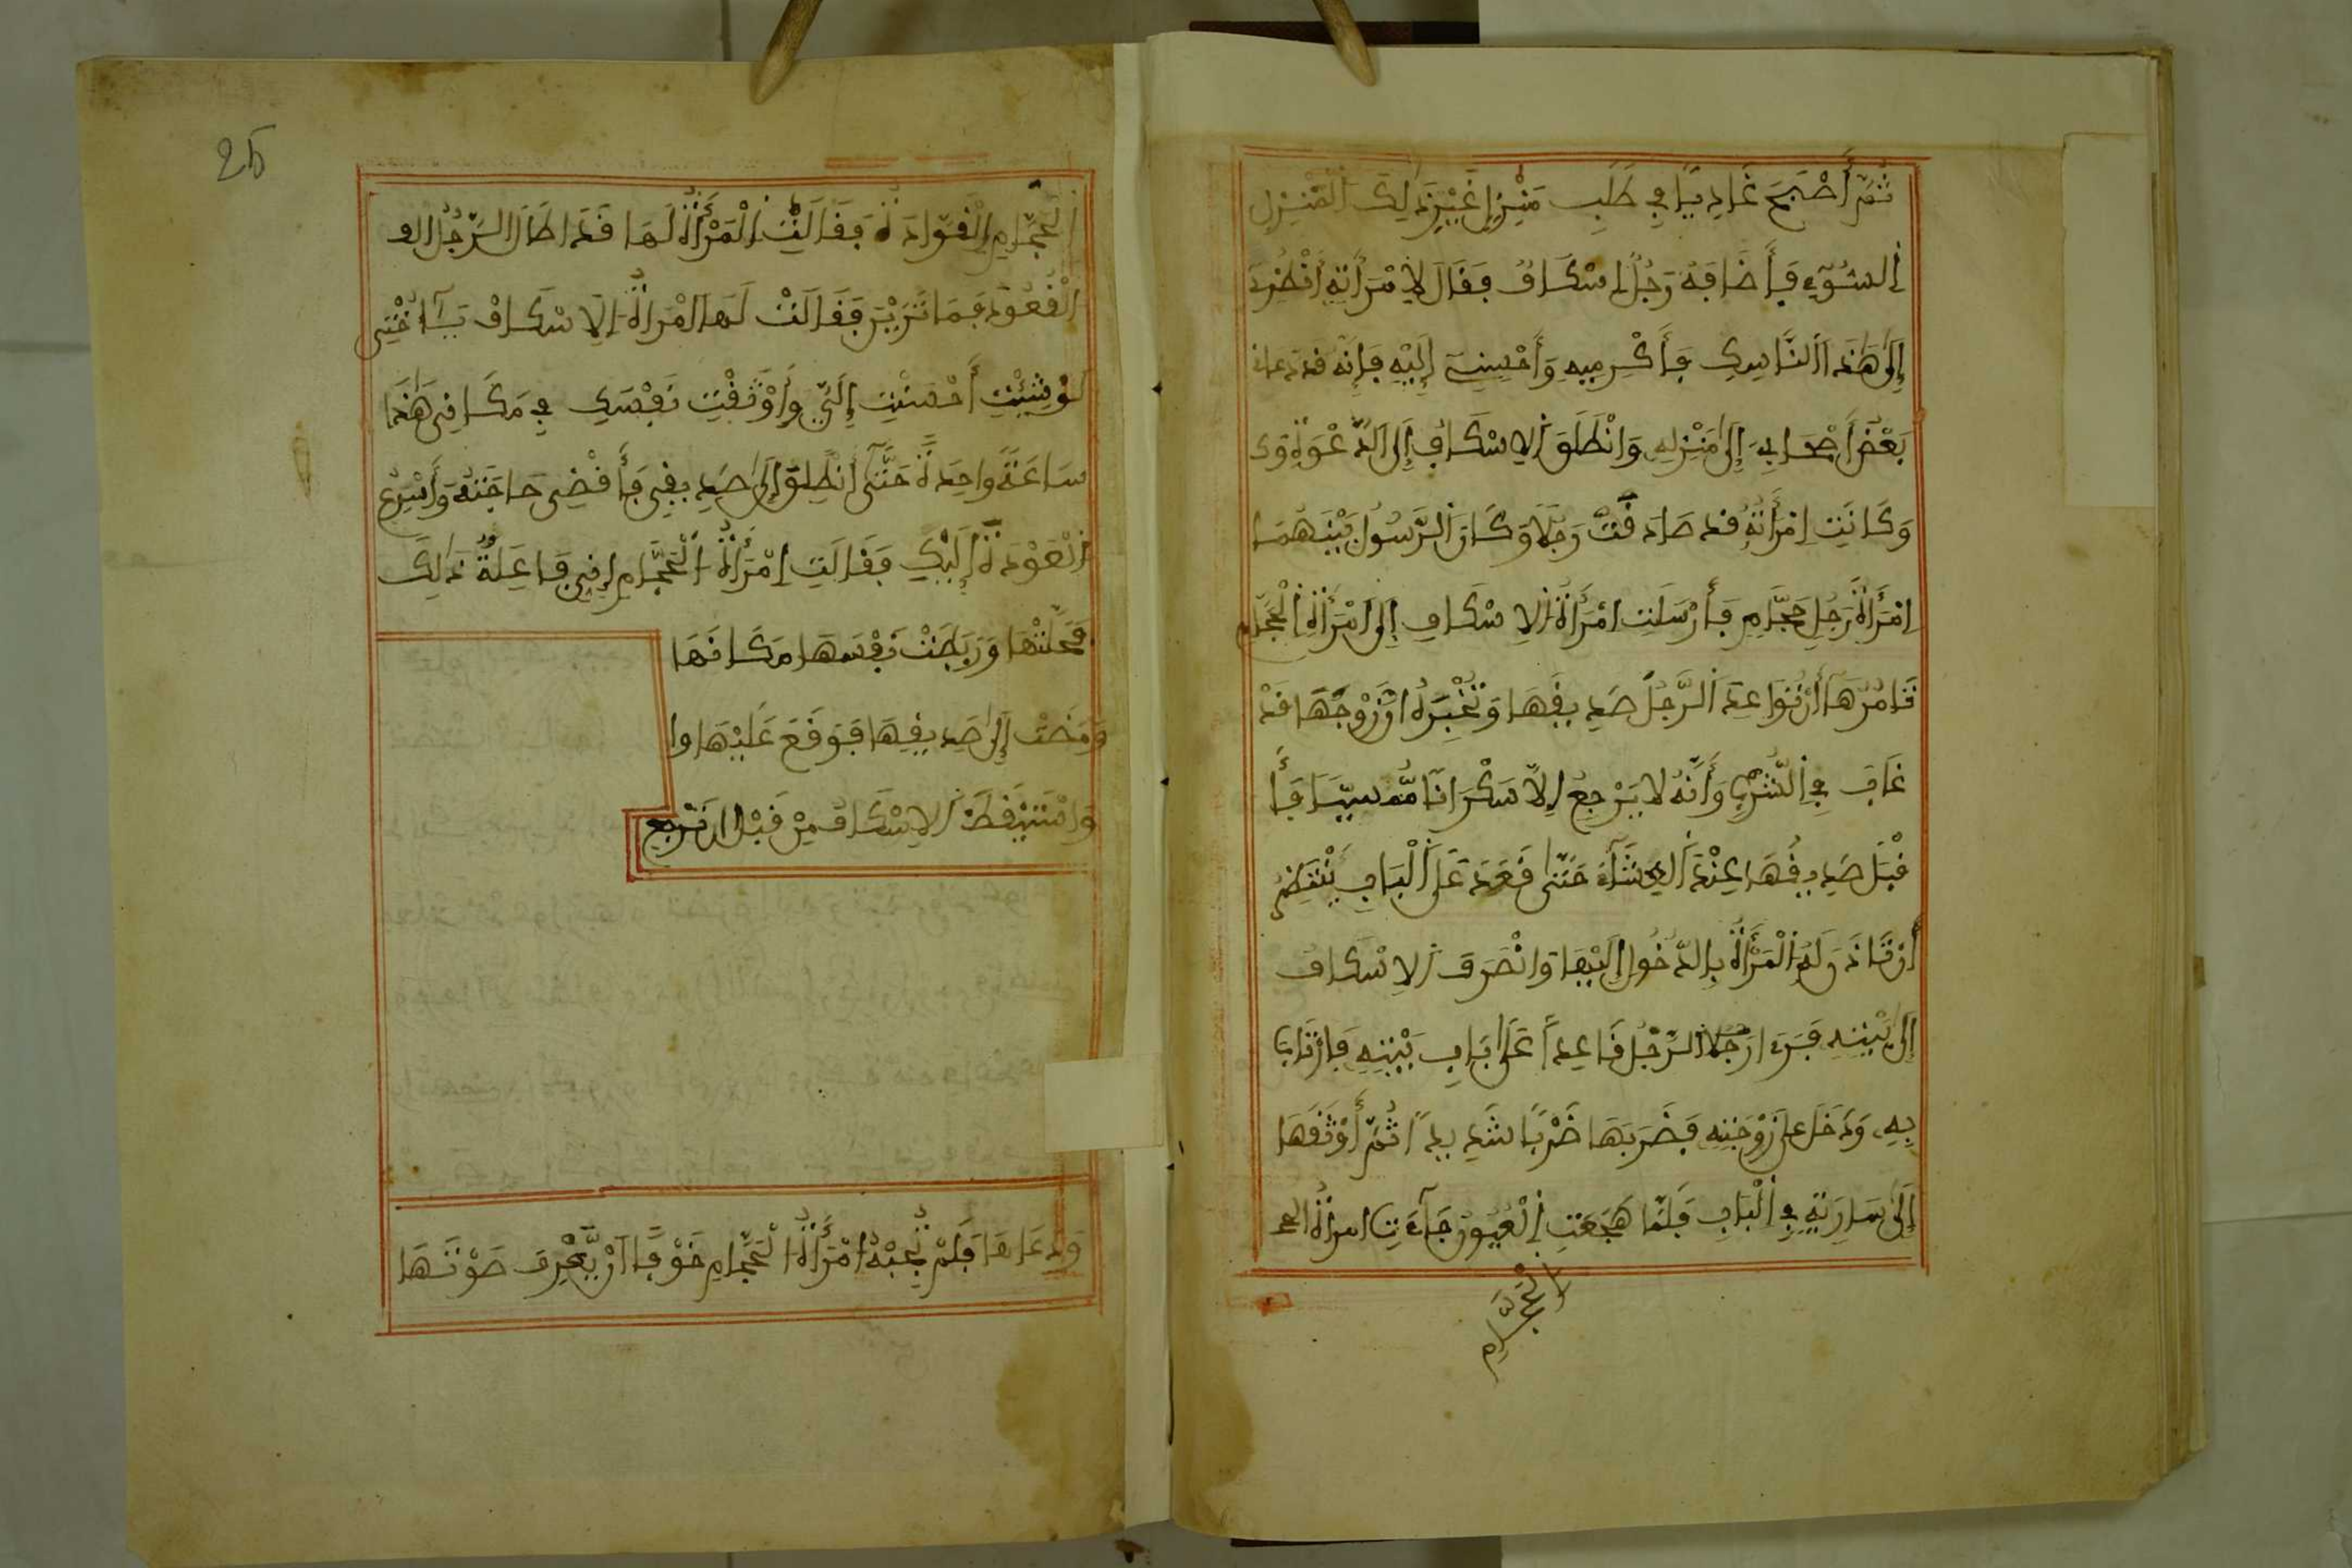 ثُمَّ أَصْبَحَ غَادِيًا فِي طَلَبِ مَنْزِلٍ غَيْرِ ذَٰلِكَ الْمَنْزِلِ
السُّوٓءِ فَأَضَافَهُ رَجُلٌ اسْكَافٌ فَقَالَ لِامْرَأَتِهِ انْظُرِي
إِلَىٰ هَٰذَا النَّاسِكِ فَأَكْرِمِيهِ وَأَحْسِنِي إِلَيْهِ فَإِنَّهُ قَد دعاني
بَعْضُ أَصْحَابِهِ إِلَىٰ مَنْزِلِهِ وَانْطَلَقَ الِاسْكَافُ إِلَى الدَّعْوَةِ وَك
وَكَانَتِ امْرَأَتُهُ قد صَادَقَتْ رَجُلًا وَكَانَ الرَّسُولُ بَيْنَهُمَا
امْرَأَةَ رَجُلٍ حَجَّامٍ فَأَرْسَلَتِ امْرَأَةُ الِاسْكَافِ إِلَى امْرَأَةِ الْحَجَّامِ
تَامُرُهَا أَنْ تُوَاعِدَ الرَّجُلَ صَدِيقَهَا وَتُخْبِرَهُ انَّ زَوْجَهَا قَدْ
غَابَ فِي الشُّرْبِ وَأَنَّهُ لَا يَرْجِعُ إِلَّا سَكْرَانًا مُّمسيًا فَأَ
قْبَلَ صَدِيقُهَا عِنْدَ الْعِشَآءِ حَتَّىٰ قَعَدَ عَلَى الْبَابِ يَنْتَظِرُ
أَنْ تَاذَنَ لَهُ الْمَرْأَةُ بِالدُّخُولِ إِلَيْهَا وَانْصَرَفَ الِاسْكَافُ
إِلَىٰ بَيْتِهِ فَرَءَا رَجُلًا الرَّجُلَ قَاعِدًا عَلَىٰ بَابِ بَيْتِهِ فَارْتَابَ
بِهِ وَدَخَلَ عَلَىٰ زَوْجَتِهِ فَضَرَبَهَا ضَرْبًا شَدِيدًا ثُمَّ أَوْثَقَهَا
إِلَىٰ سَارِيَةٍ فِي الْبَابِ فَلَمَّا هَجَعَتِ الْعُيُونُ جَآءَتِ امرأةُ الحج
الْحَجَّامِ
25
الْحَجَّامِ الْقَوَّادَةُ فَقَالَتْ الْمَرْأَةُ لَهَا قَدَ اطَالَ الرَّجُلُ الو
الْقُعُودَ فَمَا تَرَيْنَ فَقَالَتْ لَهَا امْرَأَةُ الِاسْكَافِ يَآ اخْتِي
لَوْ شِئْتِ أَحْسَنْتِ إِلَيَّ وَأَوْثَقْتِ نَفْسَكِ فِي مَكَانِي هَٰذَا
سَاعَةً وَاحِدَةً حَتَّىٰ أَنْطَلِقَ إِلَىٰ صَدِيقِي فَأَقْضِي حَاجَتَهُ وَأُسْرِعُ
الْعَوْدَةَ إِلَيْكِ فَقَالَتِ امْرَأَةُ الْحَجَّامِ إِنِّي فَاعِلَةٌ ذَٰلِكَ
فَحَلَّتْهَا وَرَبَطَتْ نَفْسَهَا مَكَانَهَا
وَمَضَتْ إِلَىٰ صَدِيقِهَا فَوَقَعَ عَلَيْهَا وا
وَاسْتَيْقَظَ الِاسْكَافُ مِنْ قَبْلِ ان تَرْجِعَ
وَدعَاهَا فَلَمْ تُجِبْهُ امْرَأَةُ الْحَجَّامِ خَوْفًا أَنْ يَّعْرِفَ صَوْتَهَا